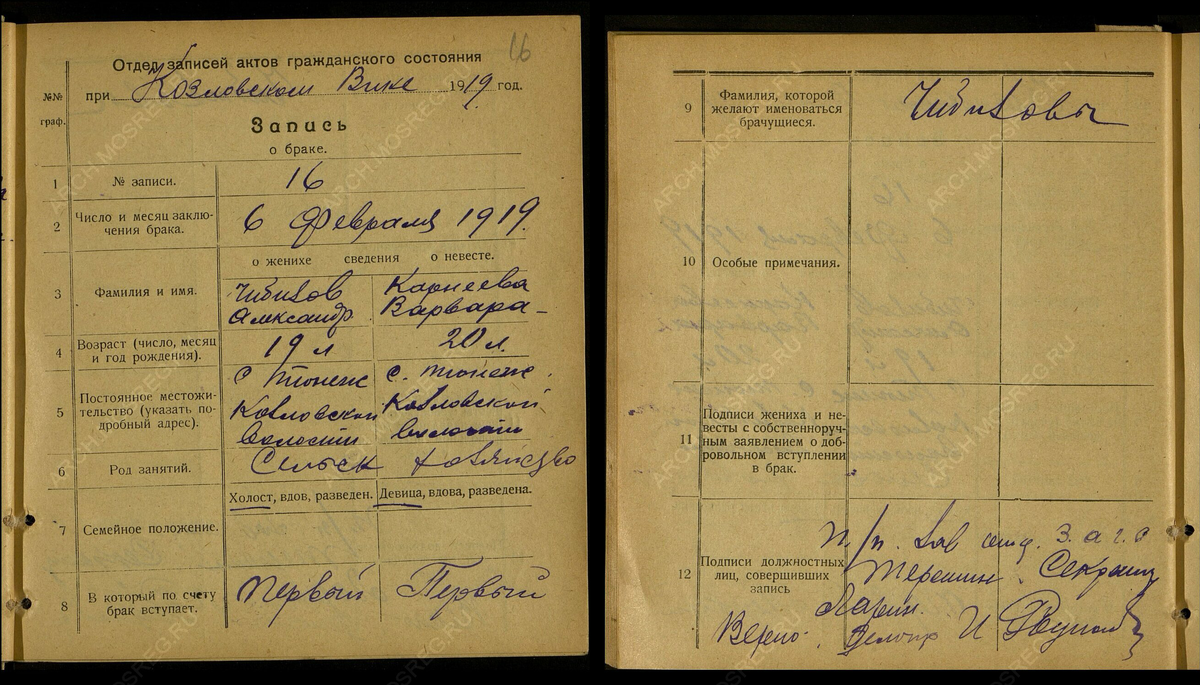 16
Отдел записей актов гражданского состояния
№№ граф.
при Козловском Вике 1919 год.
Запись
о браке.
1 № записи. 16
2 Число и месяц заклю-
чения брака. 6 февраля 1919.
о женихе сведения о невесте.
3 Фамилия и имя. Чибизов Корнеева
Александр Варвара
4 Возраст (число, месяц
и год рождения). 19 л 20 л.
5 Постоянное местожи-
тельство (указать по-
дробный адрес). с с.
Козловской Козловской
волости волости
6 Род занятий. Сельск хозяйство
Холост, вдов, разведен. Девица, вдова, разведена.
7 Семейное положение.
8 В который по счету
брак вступает. Первый Первый
9 Фамилия, которой
желают именоваться
брачущиеся. Чибизовы
10 Особые примечания.
11 Подписи жениха и не-
весты с собственноруч-
ным заявлением о доб-
ровольном вступлении
в брак.
12 Подписи должностных
лиц, совершивших
запись
п/п. Зав отд. З.а.г.с
Терешин. Секретарь
Ларин.
Верно.
ARCH.MOSREG.RU